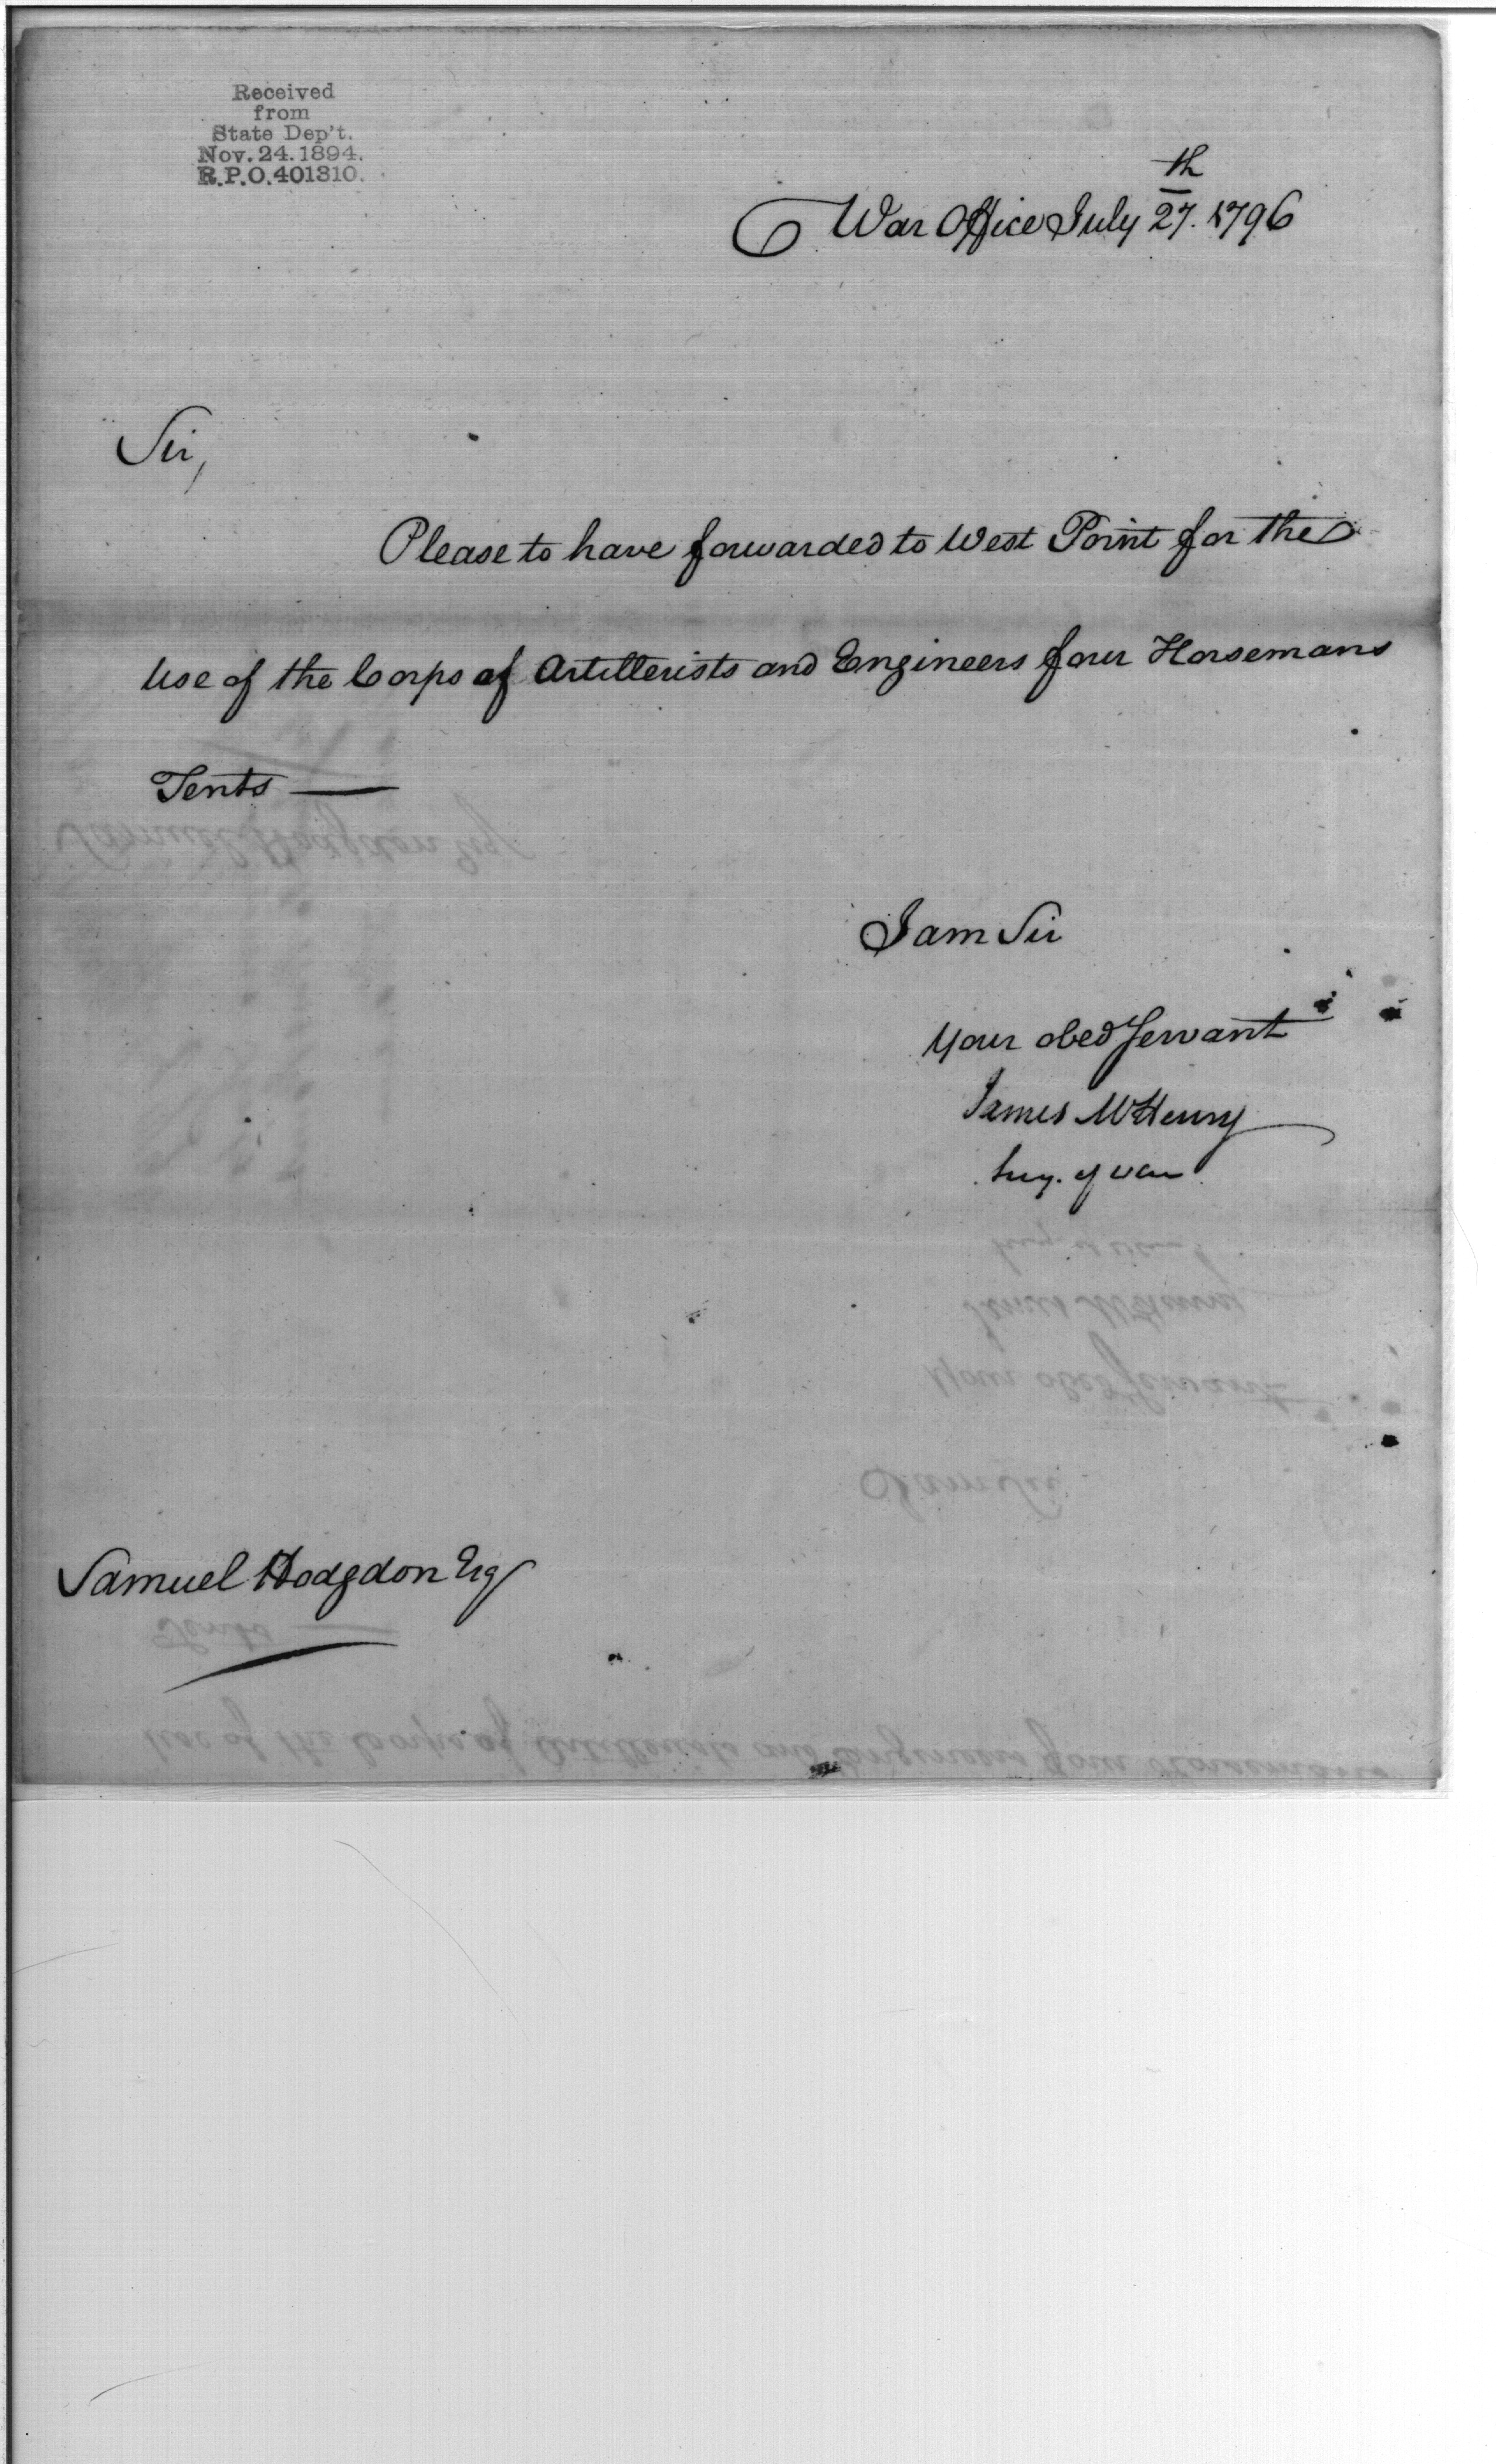 Received
from
State Dep't.
Nov. 24. 1894.
R.P.O. 401310.
War Office July 27.th 1796
Sir,
Please to have forwarded to West Point for the
Use of the Corps of Artillerists and Engineers four Horsemans
Tents —
I am Sir
Your obed Servant
James McHenry
Secy. of War
Samuel Hodgdon Esq